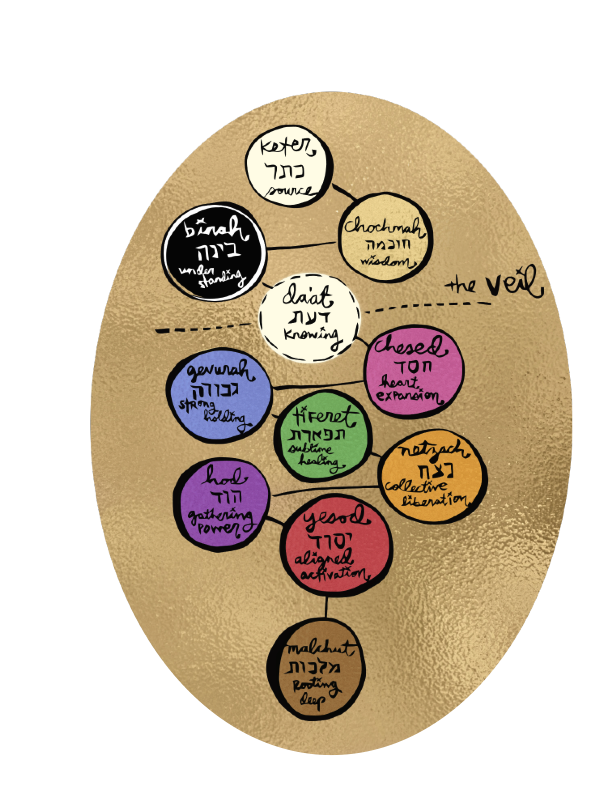 keter
כתר
source
chochmah
חוכמה
wisdom
binah
בינה
under
standing
the veil
da'at
דעת
knowing
chesed
חסד
heart
expansion
gevurah
גבורה
strong
holding
tiferet
תפארת
sublime
healing
netzach
נצח
collective
liberation
hod
הוד
gathering
power
yesod
יסוד
aligned
activation
malchut
מלכות
Rooting
deep